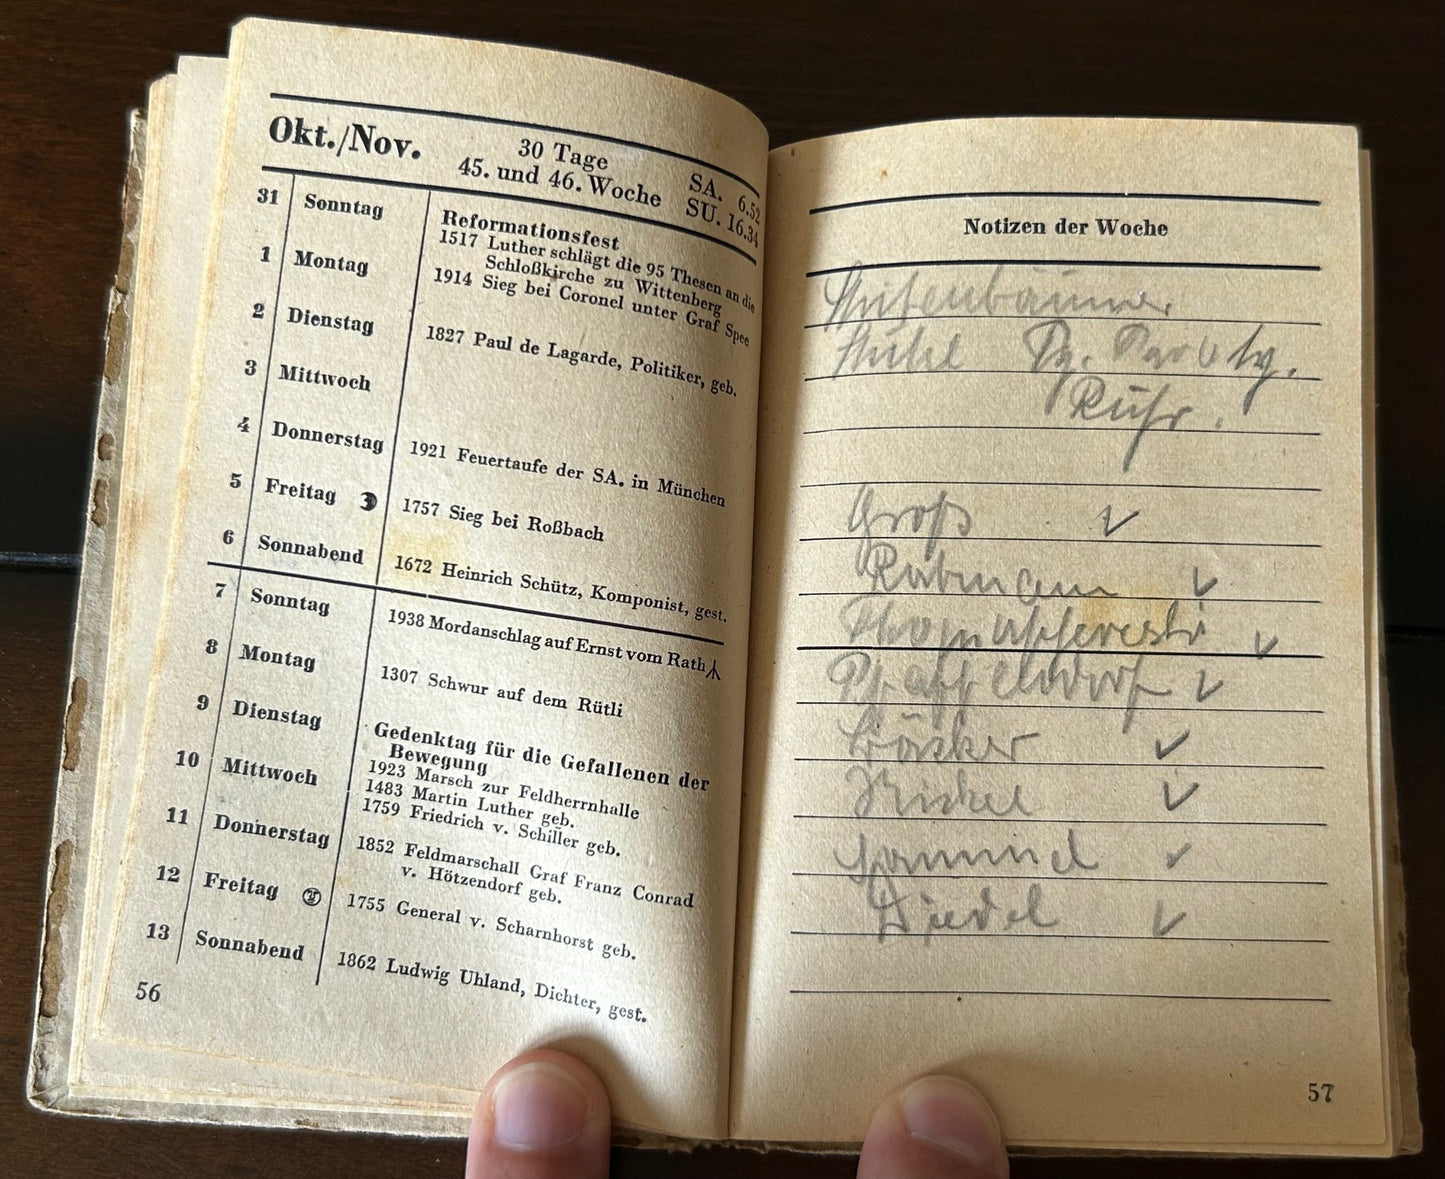 Okt./Nov. 30 Tage SA. 6.52
45. und 46. Woche SU. 16.34
31 Sonntag Reformationsfest
1517 Luther schlägt die 95 Thesen an die
Schloßkirche zu Wittenberg
1 Montag 1914 Sieg bei Coronel unter Graf Spee
2 Dienstag 1827 Paul de Lagarde, Politiker, geb.
3 Mittwoch
4 Donnerstag 1921 Feuertaufe der SA. in München
5 Freitag 1757 Sieg bei Roßbach
6 Sonnabend 1672 Heinrich Schütz, Komponist, gest.
7 Sonntag 1938 Mordanschlag auf Ernst vom Rath
8 Montag 1307 Schwur auf dem Rütli
9 Dienstag Gedenktag für die Gefallenen der
Bewegung
1923 Marsch zur Feldherrnhalle
10 Mittwoch 1483 Martin Luther geb.
1759 Friedrich v. Schiller geb.
11 Donnerstag 1852 Feldmarschall Graf Franz Conrad
v. Hötzendorf geb.
12 Freitag 1755 General v. Scharnhorst geb.
13 Sonnabend 1862 Ludwig Uhland, Dichter, gest.
56
Notizen der Woche
Ruhr.
Groß ✓
✓
✓
Pfaffendorf ✓
✓
Nickel ✓
✓
✓
57